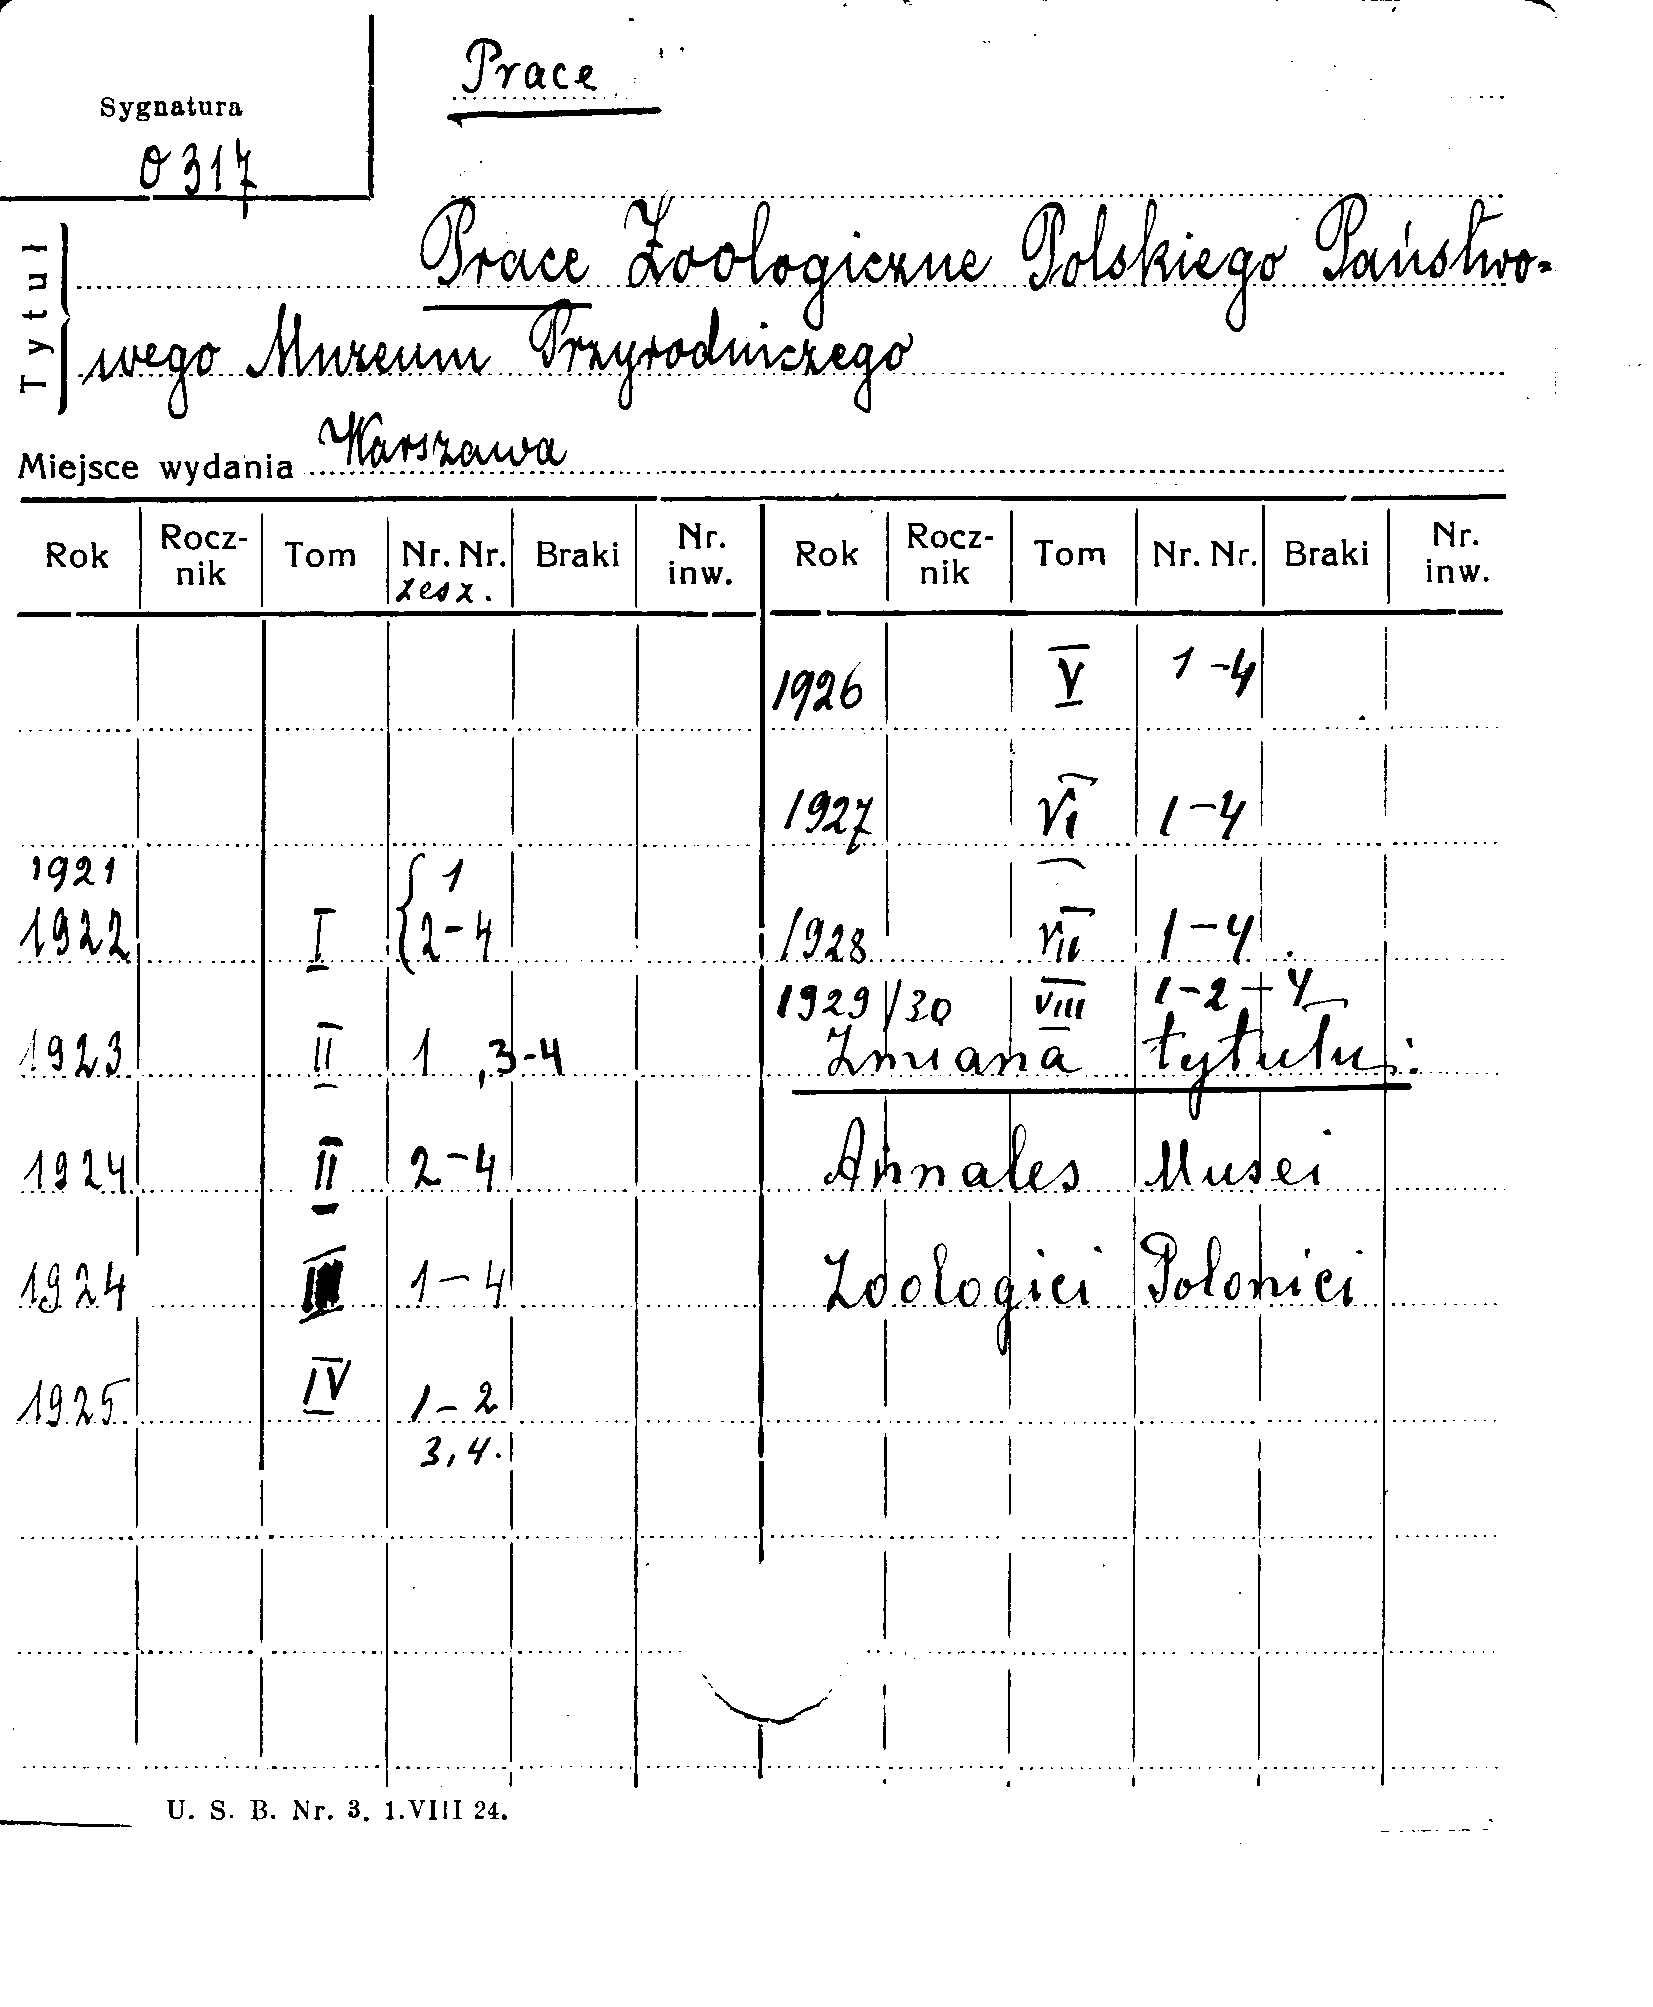 Prace
Sygnatura
O 317
Tytuł
Prace Zoologiczne Polskiego Państwo-
wego Muzeum Przyrodniczego
Miejsce wydania Warszawa
Rok Rocz- Tom Nr. Nr. Braki Nr. Rok Rocz- Tom Nr. Nr. Braki Nr.
nik zesz. inw. nik inw.
1926 V 1-4
1927 VI 1-4
1921 { 1
1922 I 2-4 1928 VII 1-4
1929/30 VIII 1-2-4
1923 II 1, 3-4 Zmiana tytułu:
1924 II 2-4 Annales Musei
1924 III 1-4 Zoologici Polonici
1925 IV 1-2
3, 4.
U. S. B. Nr. 3. 1.VIII 24.